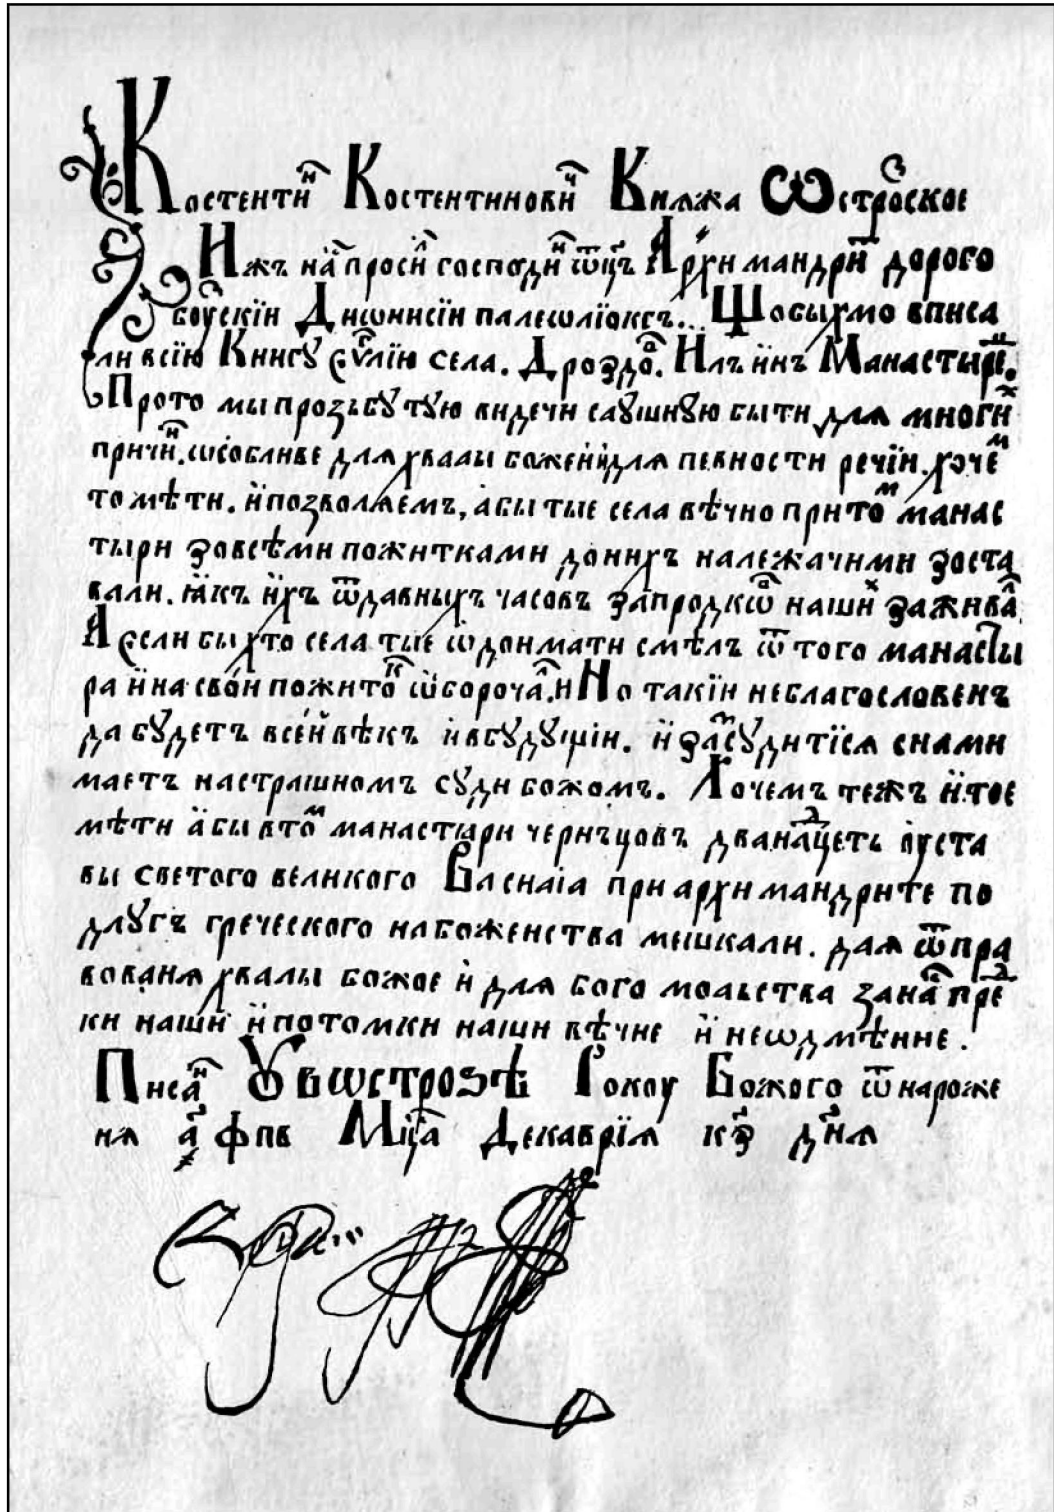 Костенти́н Костентинови́ч Кнѧжа Ѡстро́ское
Ижъ на́с проси́л господи́н ѿцъ Архимандри́т дорого
бꙋ́скїи Диѡнисїи палеѡлїокгъ... Щобыхмо вписа
ли всїю Книгꙋ єѵⷢ҇лїю села. Дроздѡ́в. Илъинъ Манастыре́.
Прото мы прозьбꙋ тꙋю видечи слꙋшнꙋю быти для многиⷯ
причиⷩ. ѡсобливе для хвалы божей и для певности речїи. хочеⷨ
то мѣти. и позволяемъ, абы тые села вѣчно при тоⷨ манас
тыри зо всѣми пожитками до нихъ належачими зоста
вали. ꙗкъ ихъ ѿ давныхъ часовъ за продкѡⷡ нашиⷯ заживаⷧ
А єсли бы хто села тые ѡдоймати смѣлъ ѿ того манасты
ра и на свой пожитоⷦ ѡборочаⷧ. и Но такїи неблагословенъ
да бꙋдетъ в сей вѣкъ и в бꙋдꙋщїи. и засꙋдитїся с нами
маетъ на страшномъ сꙋди божомъ. Хочемъ тежъ и тое
мѣти абы в тоⷨ манастыри чернъцовъ дванаⷣцеть ꙋста
вы светого великого Василїа при архимандрите по
длꙋгъ греческого набоженства мешкали. для ѿпра
вованя хвалы божое и для богомольства за наⷲ преⷣ
ки наши и потомки наши вѣчне и неѡдмѣнне.
Писаⷩ Ꙋ в ѡстрозѣ Рокоу Божого ѿ нароже
ня ҂а҃ фпв Мцⷭ҇а Декаврїя кз҃ дн҃я